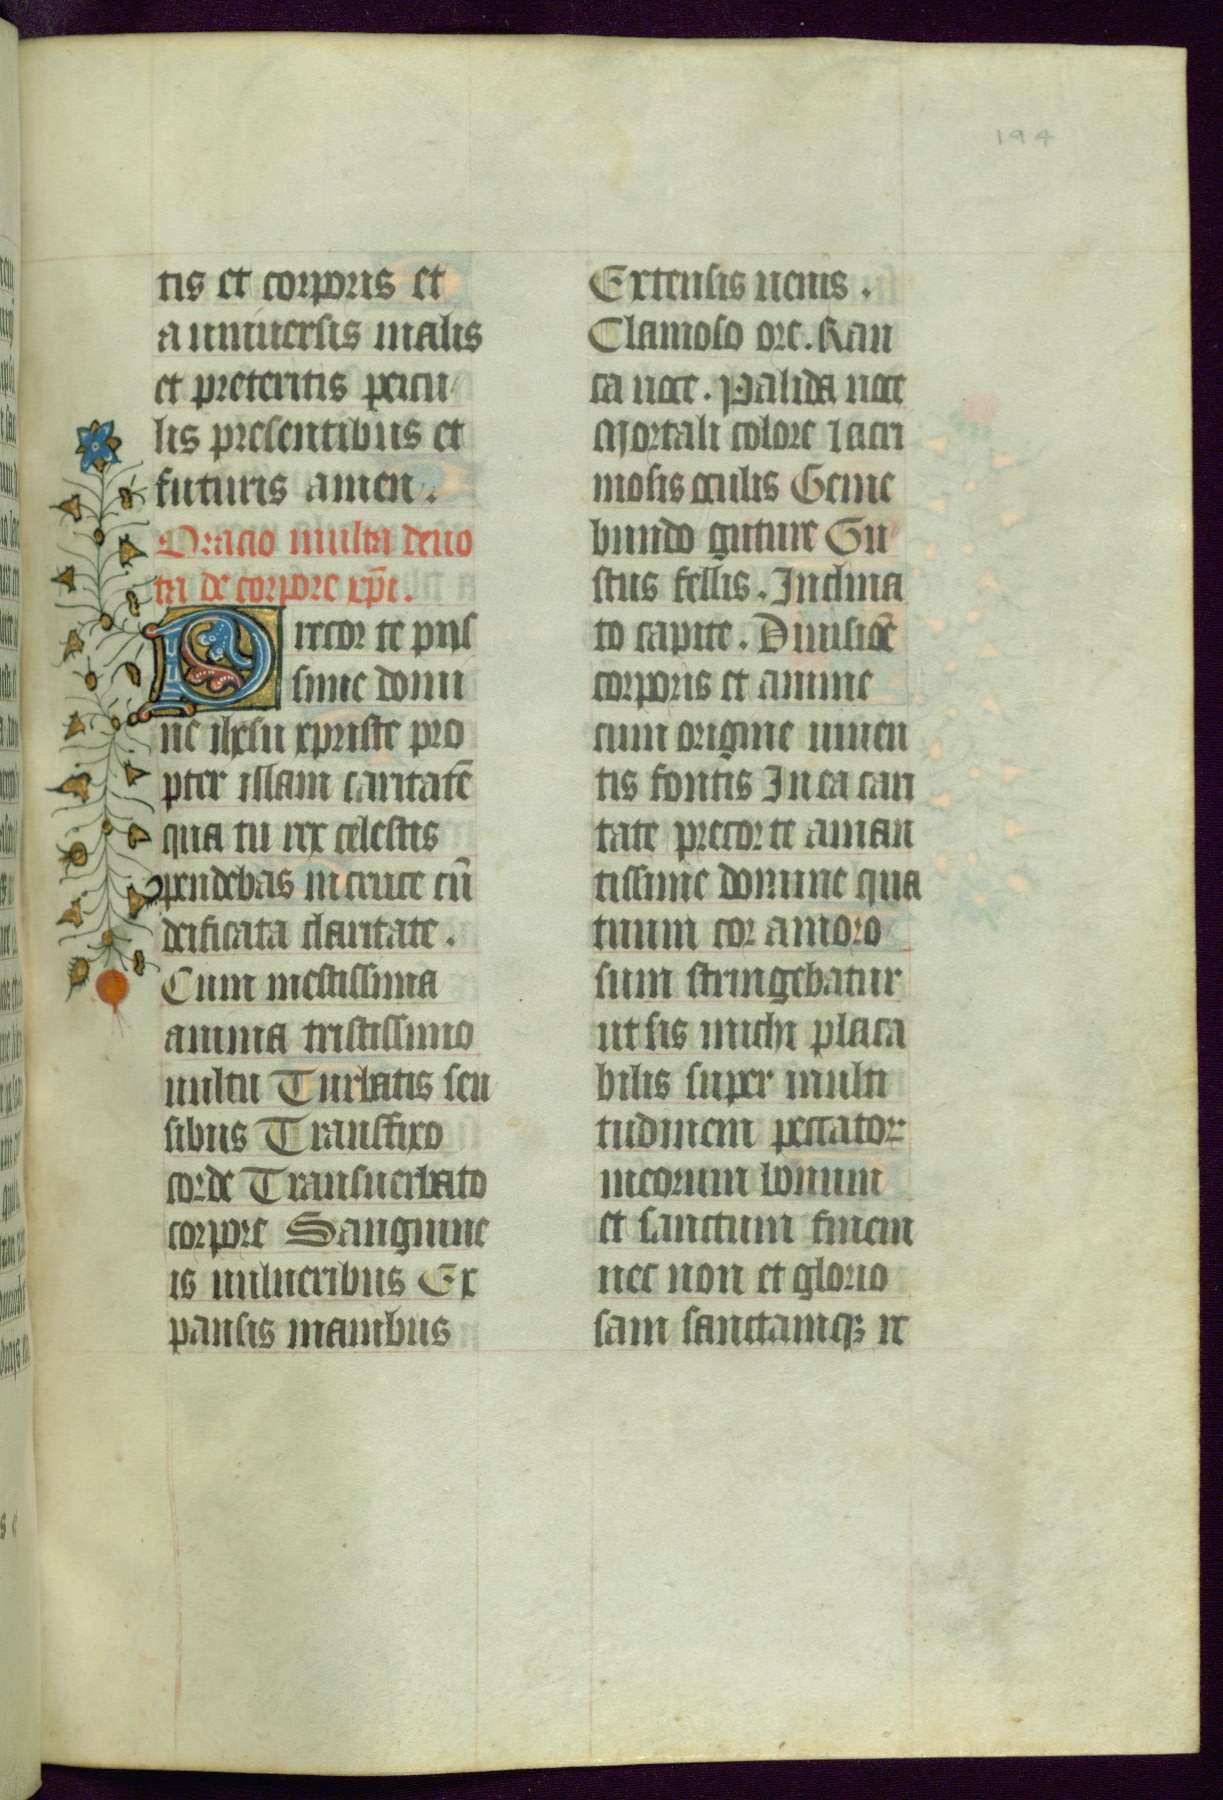 194
tis et corporis et
a universis malis
et preteritis pericu
lis presentibus et
futuris amen.
Oracio multu devo
ta de corpore xp̄i.
Precor te piis
sime domi
ne ihesu xpriste pro
pter illam caritatē
qua tu rex celestis
pendebas in cruce cū
deificata claritate.
Cum mestissima
anima tristissimo
uultu Turbatis sen
sibus Transfixo
corde Transuerbato
corpore Sanguine
is uulneribus Ex
pansis manibus
Extensis uenis.
Clamoso ore. Rau
ca uoce. Palida uoce
Mortali colore lacri
mosis oculis Geme
bundo guture Gu
stus fellis. Inclina
to capite. Diuisiōe
corporis et anime
cum origine uiuen
tis fontis In ea cari
tate precor te aman
tissime domine qua
tuum cor amoro
sum stringebatur
ut sis michi placa
bilis super multi
tudinem peccatorꝝ
meorum bonum
et sanctum finem
nec non et glorio
sam sanctamqꝫ re